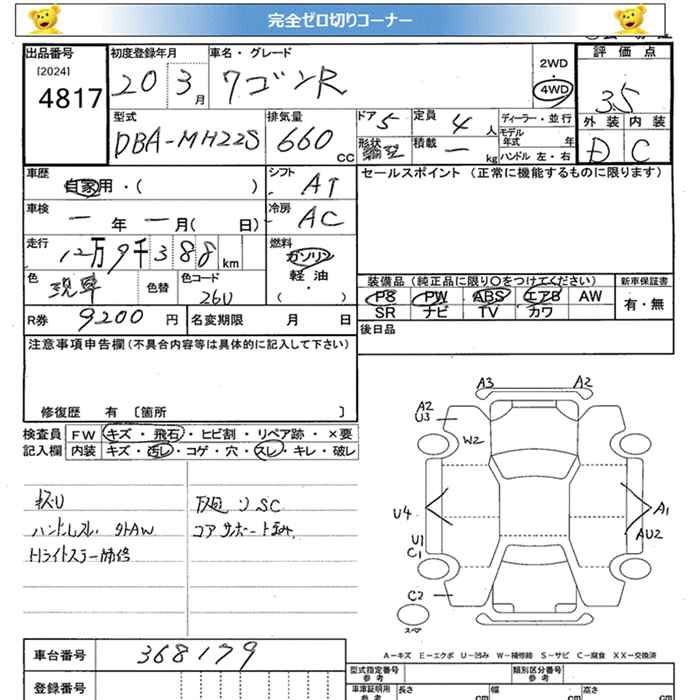 完全ゼロ切りコーナー
出品番号 初度登録年月 車名・グレード 2WD 評価点
[2024]
4817 20 3月 ワゴンR 4WD 3.5
型式 排気量 ドア 5 定員 4人 ディーラー・並行 外装 内装
DBA-MH22S 660cc 形状 積載 ー kg モデル年式 年 D C
ハンドル 左・右
車歴 自家用・( ) シフト AT セールスポイント (正常に機能するものに限ります)
車検 ー年 ー月( 日) 冷房 AC
走行 12万9千388km 燃料 ガソリン
軽油
( )
色 現車 色替 色コード 26U 装備品(純正品に限り〇をつけてください) 新車保証書
PS PW ABS エアB AW 有・無
SR ナビ TV カワ
R券 9200円 名変期限 月 日 後日品
注意事項申告欄(不具合内容等は具体的に記入して下さい)
修復歴 有 〔箇所 〕
検査員 FW キズ・飛石・ヒビ割・リペア跡・×要
記入欄 内装 キズ・汚レ・コゲ・穴・スレ・キレ・破レ
キズU 下廻リSC
ハンドルスレ 外AW コアサポート歪み
Hライトステー補修
A3 A2
A2
U3
W2
U4 A1
AU2
U1
C1
C2
スペア
A-キズ E-エクボ U-凹み W-補修跡 S-サビ C-腐食 XX-交換済
車台番号 368179
登録番号
型式指定番号 参考 類別区分番号 参考
車庫証明用 参考 長さ cm 幅 cm 高さ cm